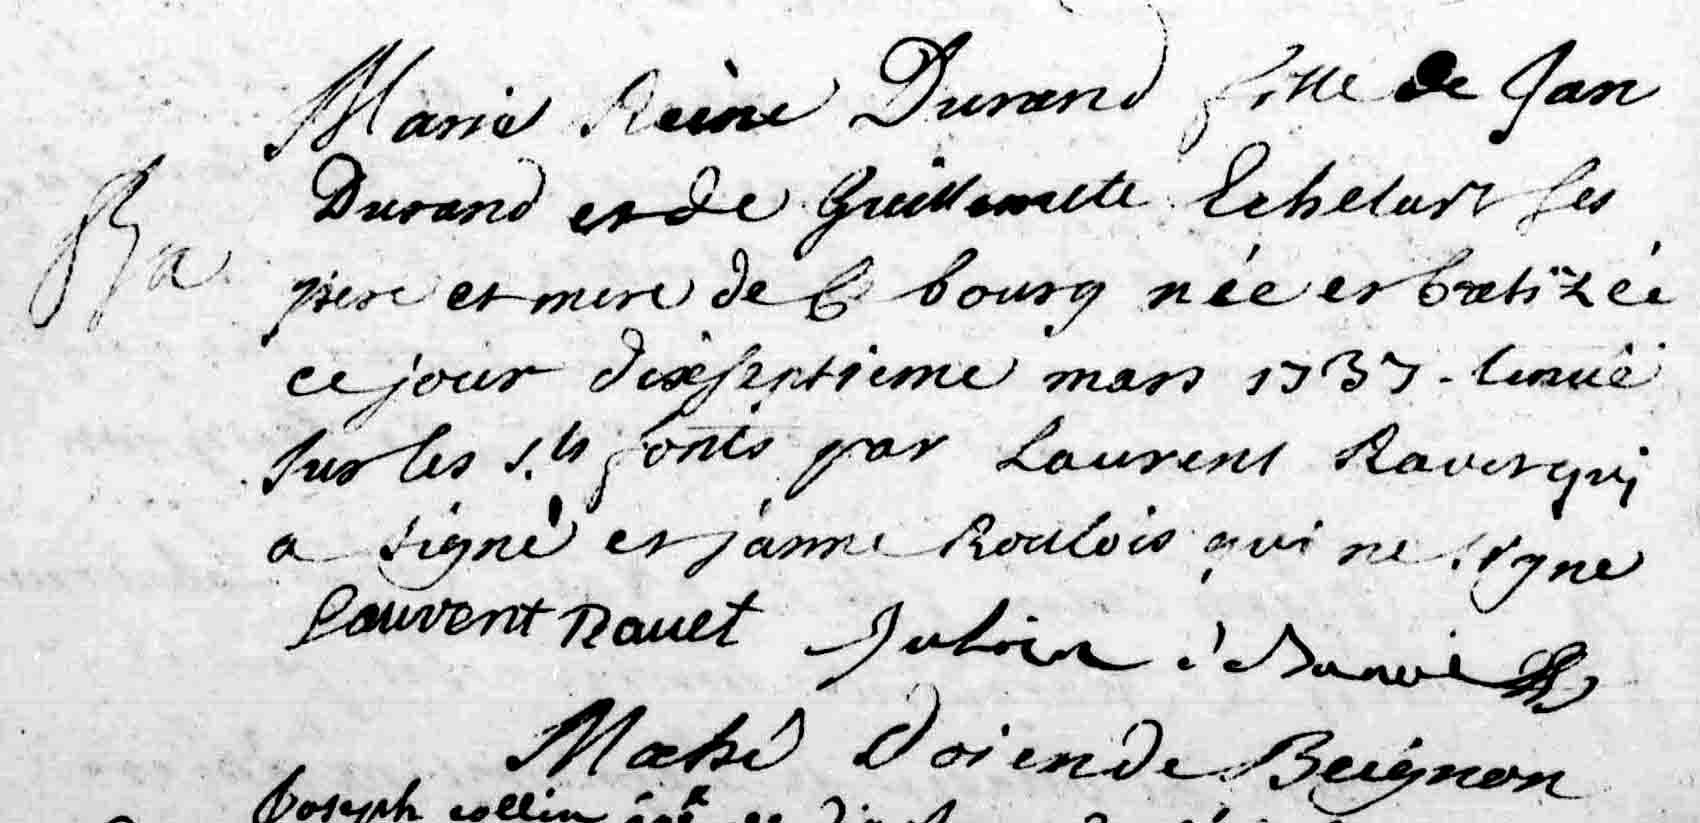 Marie Reine Durand fille de Jan
Durand et de Guillemette Echelart ses
Ba
pere et mere de ce bourg née et batizée
ce jour dixseptieme mars 1737. tenuë
sur les s.ts fonts par Laurent Ravet qui
a signé et janne Roulois qui ne signe
lauvent Rauet Julien
Mahé Doien de Beignon
Joseph collin